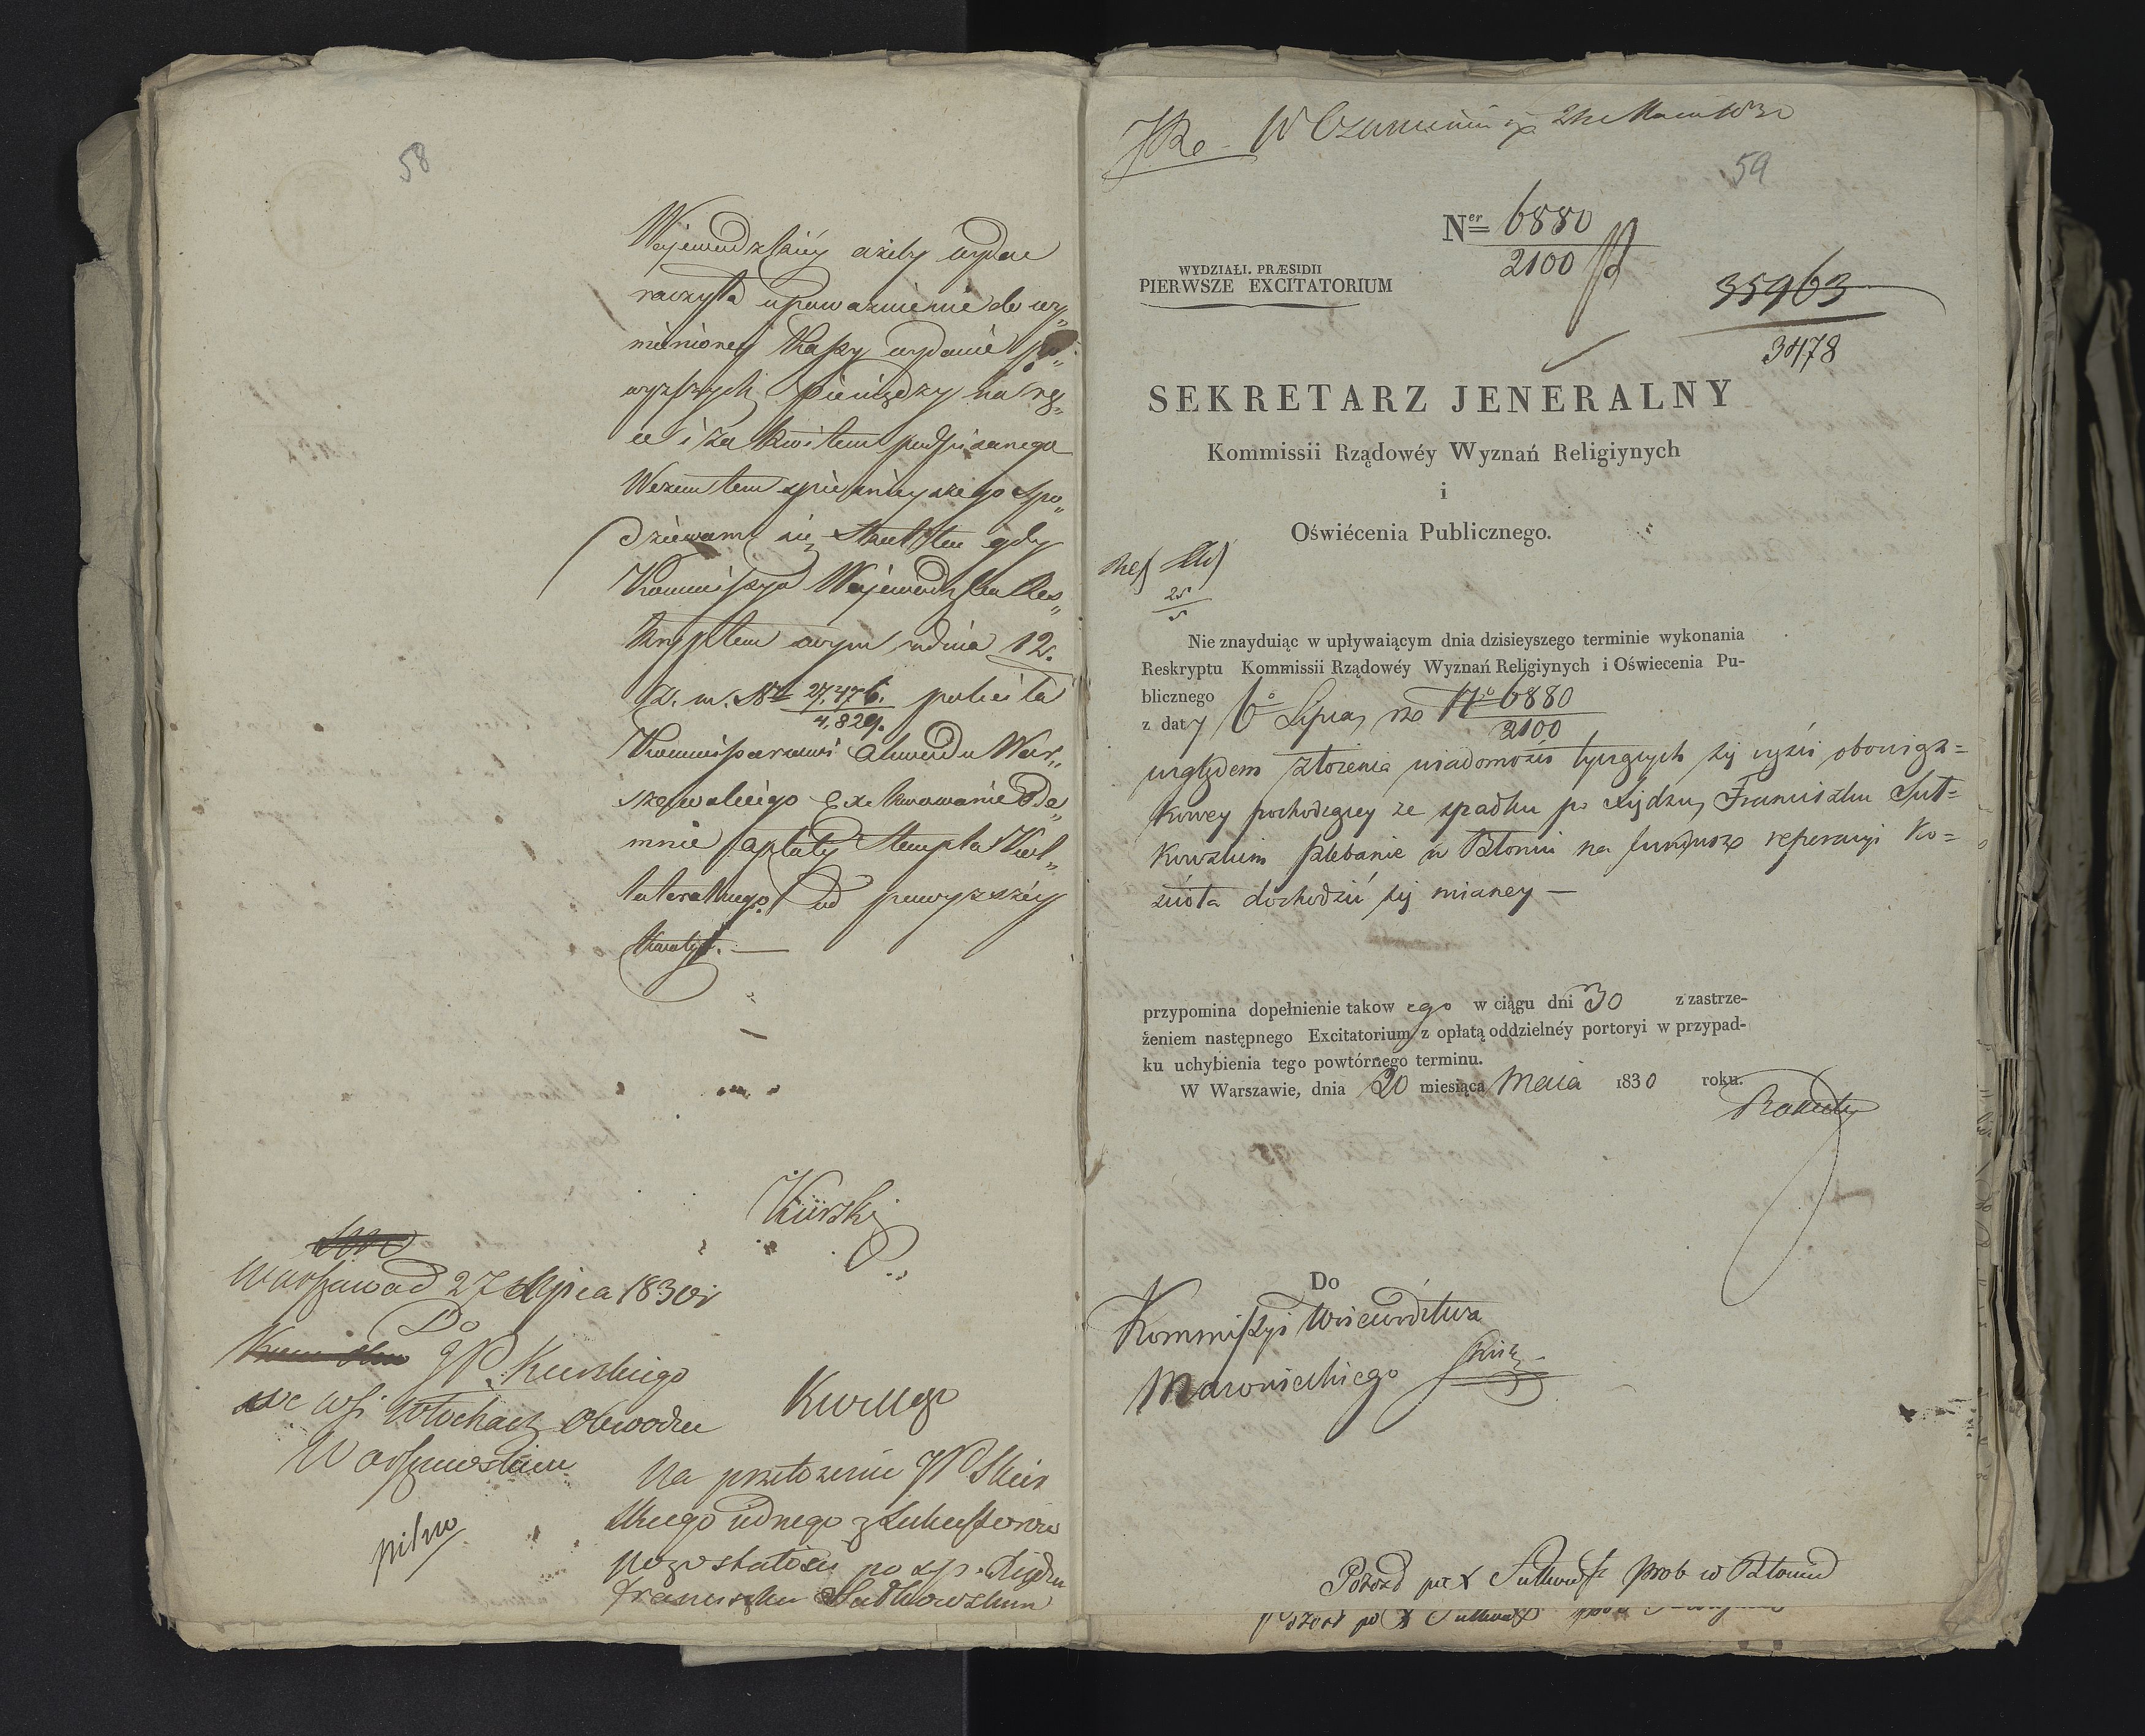 58
Wojewodzkiéy ażeby wydać
raczyła upoważnienie do wy„
mienioney Kassy wydanie po„
wyzszych pieniędzy na rę„
ce i za kwitem podpisanego
W czem tem spiesznieyszego spo„
dziewam się skutku gdy
Kommissya Wojewodzka Res„
kryptem swym z dnia 12.
b. m. Nro 27,476.
4,829. poleciła
Kommissarzowi Obwodu War„
szawskiego exekwowanie ode„
mnie opłaty Stempla Kol„
lateralnego od powyższéy
kwoty. —
Kurski
Warszawa d 27 Lipca 1830 r
Do
JP. Kurskiego
we wsi Włochach Obwodu
Warszawskim
pilno
Na przełożenie JP Kur
skiego iednego z Sukcessorów
pozostałości po ś. p. Xiędzu
Franciszku Sutkowskim
59
Ner 6880
2100
WYDZIAŁ I. PRÆSIDII
PIERWSZE EXCITATORIUM
35963
3478
SEKRETARZ JENERALNY
Kommissii Rządowéy Wyznań Religiynych
i
Oświécenia Publicznego.
25
5
Nie znayduiąc w upływaiącym dnia dzisieyszego terminie wykonania
Reskryptu Kommissii Rządowéy Wyznań Religiynych i Oświecenia Pu-
blicznego
z daty 6o Lipca, no No 6880
2100
względem złożenia wiadomości tyczących się części obowiąz=
kowey pochodzącey ze spadku po Xiędzu Franciszku Sut=
kowskim Plebanie w Błoniu na fundusz reperacyi Ko=
ścioła dochodzić się mianey —
przypomina dopełnienie takowego w ciągu dni 30 z zastrze-
żeniem następnego Excitatorium z opłatą oddzielnéy portoryi w przypad-
ku uchybienia tego powtórnego terminu.
W Warszawie, dnia 20 miesiąca Maia 1830 roku.
Do
Kommissyi Woiewództwa
Mazowieckiego
Pozost po X Sutkowsk prob w Błoniu